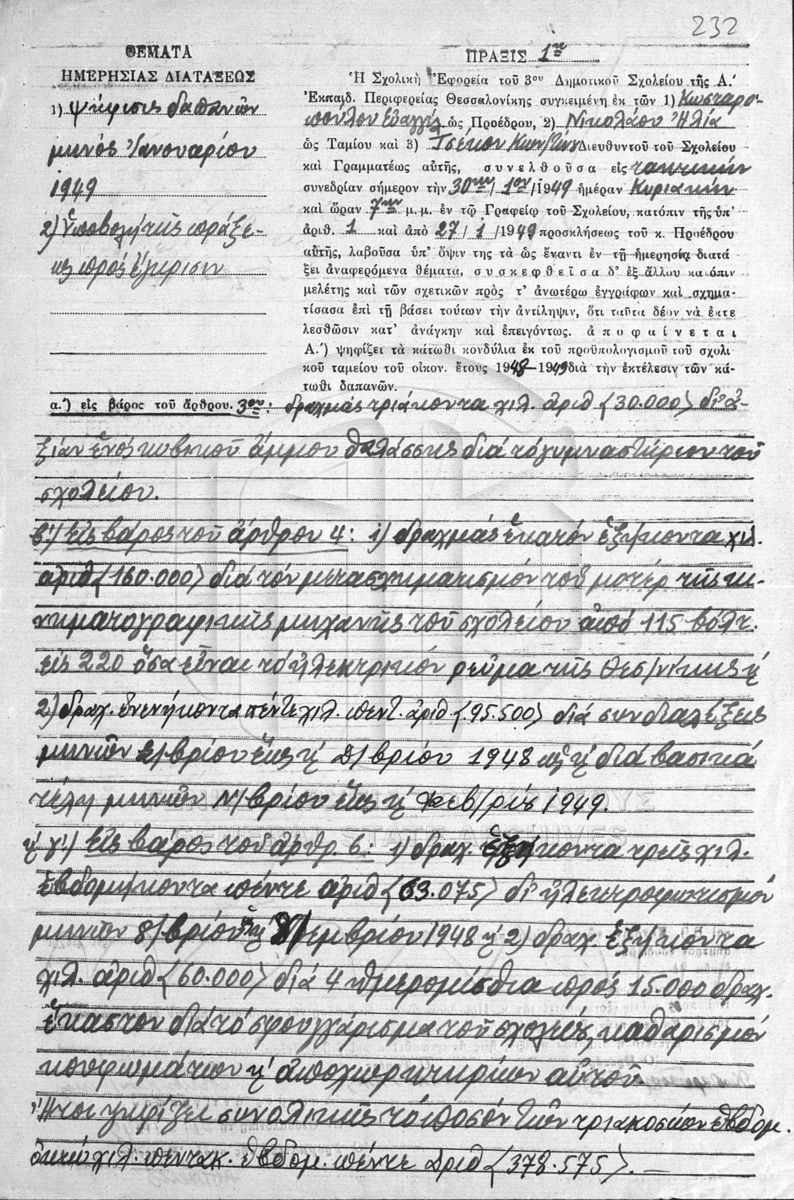 232
ΘΕΜΑΤΑ
ΗΜΕΡΗΣΙΑΣ ΔΙΑΤΑΞΕΩΣ
1) Ψήφισις δαπανῶν
μηνός Ἰανουαρίου
1949
2) Ὑποβολή τῆς πράξε-
ως πρός ἔγκρισιν
ΠΡΑΞΙΣ 1η
Ἡ Σχολικὴ Ἐφορεία τοῦ 3ου Δημοτικοῦ Σχολείου τῆς Α.΄
Ἐκπαιδ. Περιφερείας Θεσσαλονίκης συγκειμένη ἐκ τῶν 1) Κωσταρο-
πούλου Εὐαγγ. ὡς Προέδρου, 2) Νικολάου Ἠλία
ὡς Ταμίου καὶ 3) Τσέκου Κων/τίνου Διευθυντοῦ τοῦ Σχολείου
καὶ Γραμματέως αὐτῆς, συνελθοῦσα εἰς τακτικήν
συνεδρίαν σήμερον τὴν 30ην/1ου/1949 ἡμέραν Κυριακήν
καὶ ὥραν 7ην μ.μ. ἐν τῷ Γραφείῳ τοῦ Σχολείου, κατόπιν τῆς ὑπ᾽
ἀριθ. 1 καὶ ἀπὸ 27/1/1949 προσκλήσεως τοῦ κ. Προέδρου
αὐτῆς, λαβοῦσα ὑπ᾽ ὄψιν της τὰ ὡς ἔναντι ἐν τῇ ἡμερησίᾳ διατά
ξει ἀναφερόμενα θέματα, συσκεφθεῖσα δ᾽ ἐξ ἄλλου κατόπιν
μελέτης καὶ τῶν σχετικῶν πρὸς τ᾽ ἀνωτέρω ἐγγράφων καὶ σχημα-
τίσασα ἐπὶ τῇ βάσει τούτων τὴν ἀντίληψιν, ὅτι ταῦτα δέον νὰ ἐκτε
λεσθῶσιν κατ᾽ ἀνάγκην καὶ ἐπειγόντως. ἀποφαίνεται
Α.΄) ψηφίζει τὰ κάτωθι κονδύλια ἐκ τοῦ προϋπολογισμοῦ τοῦ σχολι
κοῦ ταμείου τοῦ οἰκον. ἔτους 1948-1949 διὰ τὴν ἐκτέλεσιν τῶν κά-
τωθι δαπανῶν.
α.΄) εἰς βάρος τοῦ ἄρθρου. 3ου: δραχμάς τριάκοντα χιλ. ἀριθ (30.000) δι' ἀ-
ξίαν ἑνός κυβικοῦ ἄμμου θαλάσσης διά τό γυμναστήριον τοῦ
σχολείου.
β΄) Εἰς βάρος τοῦ ἄρθρου 4: 1) δραχμάς ἑκατόν ἑξήκοντα χιλ.
ἀριθ (160.000) διά τόν μετασχηματισμόν τοῦ μοτέρ τῆς κι-
νηματογραφικῆς μηχανῆς τοῦ σχολείου ἀπό 115 βόλτ.
εἰς 220 ὅσα εἶναι τό ἠλεκτρικόν ρεῦμα τῆς Θεσ/νίκης ϗ
2) δραχ. ἐνενήκοντα πέντε χιλ. πεντ. ἀριθ (95.500) διά συνδιαλέξεις
μηνῶν 9/βρίου ἕως ϗ 8/βρίου 1948 ϗ διά βασικά
τέλη μηνῶν Ν/βρίου ἕως ϗ Φεβ/ρίου 1949.
ϗ γ΄) Εἰς βάρος τοῦ ἄρθρ. 6: 1) δραχ. ἑξήκοντα τρεῖς χιλ.
ἑβδομήκοντα πέντε ἀριθ (63.075) δι' ἠλεκτροφωτισμόν
μηνῶν 8/βρίου ϗ Δ/εμβρίου 1948 ϗ 2) δραχ ἑξήκοντα
χιλ. ἀριθ (60.000) διά 4 ἡμερομίσθια πρός 15.000 δραχ.
ἕκαστον διά τό σφουγγάρισμα τοῦ σχολείου, καθαρισμόν
κουφωμάτων ϗ ἀποχωρητηρίων αὐτοῦ
Ἤτοι ψηφίζει συνολικῶς τό ποσόν τῶν τριακοσίων ἑβδομ.
ὀκτώ χιλ. πεντακ. ἑβδομ. πέντε ἀριθ (378.575). —